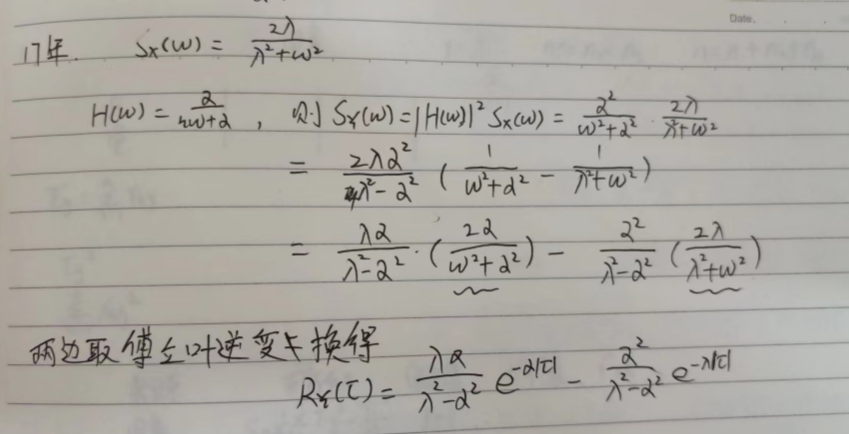 Date.
17年. Sx(ω) = 2λ/(λ²+ω²)
H(ω) = α/(iω+α) , 则 S_Y(ω) = |H(ω)|² Sx(ω) = α²/(ω²+α²) · 2λ/(λ²+ω²)
= 2λα²/(λ²-α²) ( 1/(ω²+α²) - 1/(λ²+ω²) )
= λα/(λ²-α²) · ( 2α/(ω²+α²) ) - α²/(λ²-α²) ( 2λ/(λ²+ω²) )
两边取傅立叶逆变换得
R_Y(τ) = λα/(λ²-α²) e^{-α|τ|} - α²/(λ²-α²) e^{-λ|τ|}